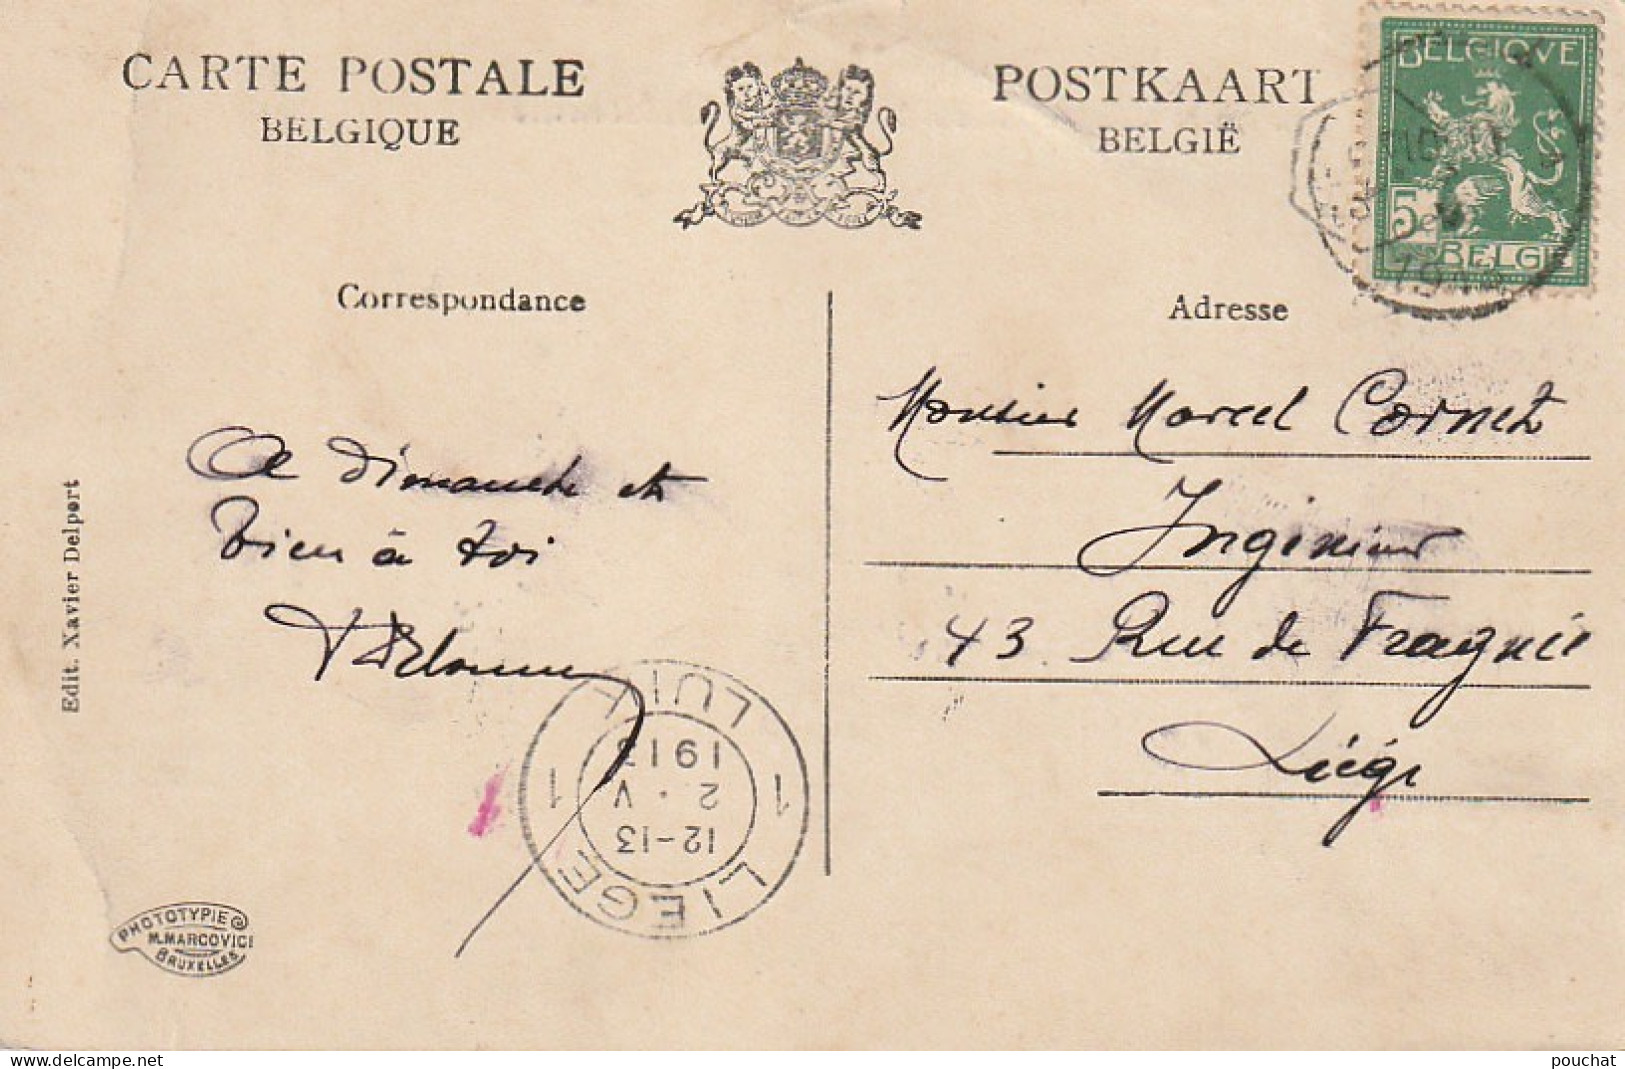 CARTE POSTALE
BELGIQUE
POSTKAART
BELGIË
BELGIQUE
5c
BELGIË
Correspondance
Adresse
A Dimanche et
bien à toi
Monsieur Marcel Cornet
Ingénieur
43 Rue de Fragnée
Liége
LIEGE
12-13
2 . V
1913
1 1
LUIK
Edit. Xavier Delport
PHOTOTYPIE
M.MARCOVICI
BRUXELLES
pouchat